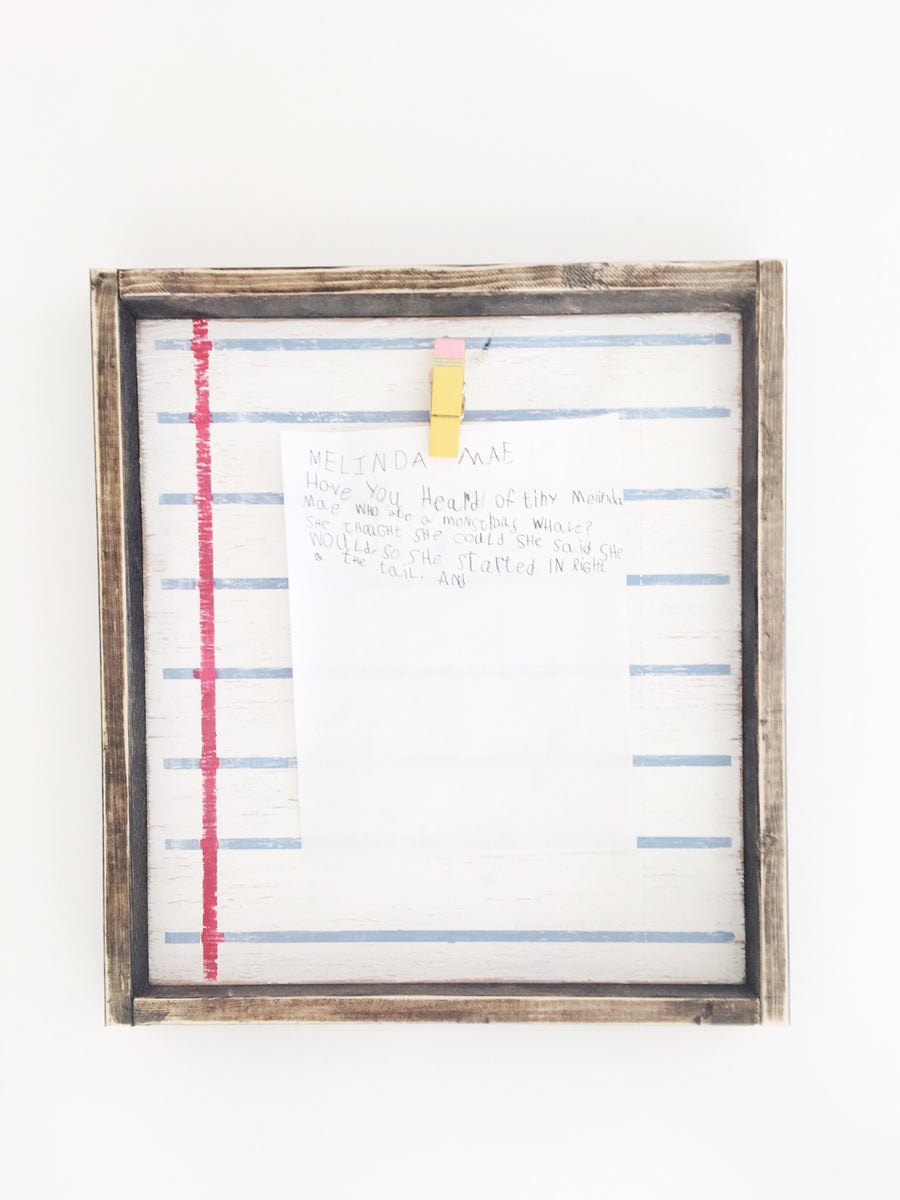 MELINDA MAE
HAVE YOU HeaRd Of tiNy Melinda
Mae WHO ate a monstrous WHALe?
SHe THOUGHT SHe COULD SHe SaiD SHe
WOULD, SO SHe StarteD IN RiGHt
a the tail. AND